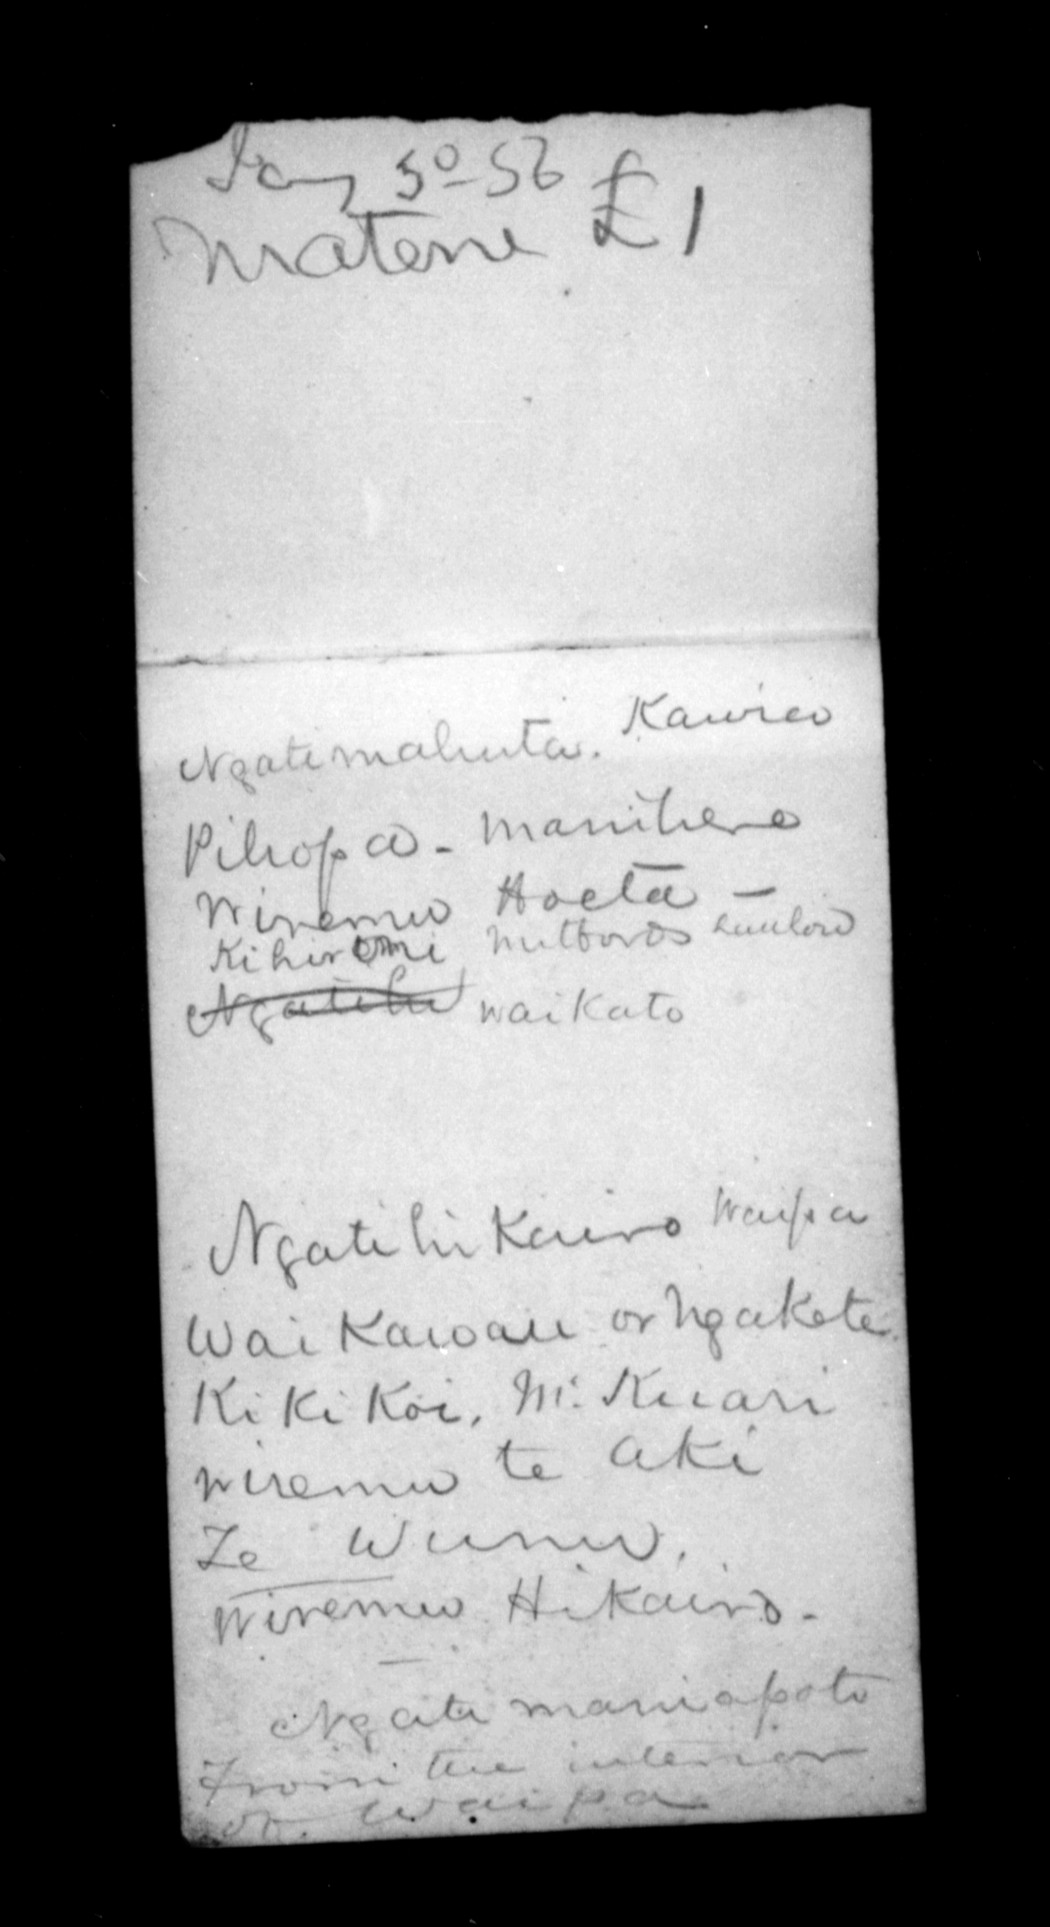 Jany 30-56
Matene £1
Ngatimahuta. Kawio
Pihopa - Manihera
Wiremu Hoeta -
Kihiromi
Ngatihi waikato
Ngatihikairo Waipa
Wai Kawau or Ngakete.
Ki Ki Koi, Mr. Kuari
wiremu te Aki
Te Wunu.
Wiremu Hikairo.-
Ngatimaniapoto
From the interior
or Waipa